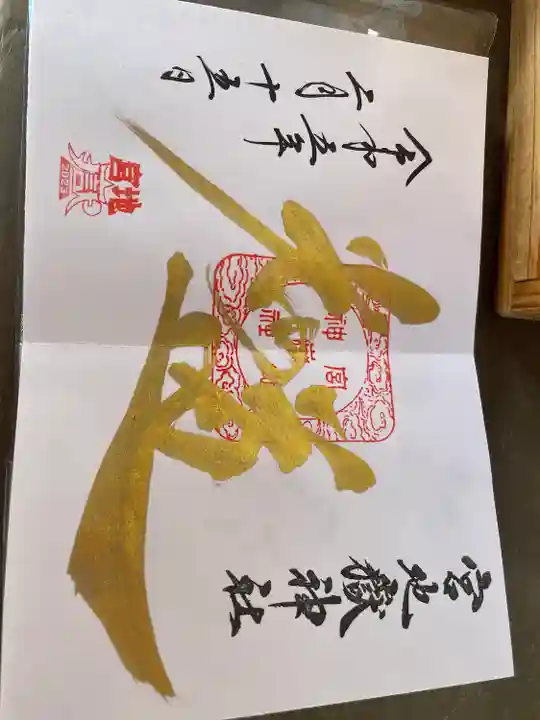 宮地嶽神社
宮地嶽神社
令和五年
二月十五日
宮地
2023